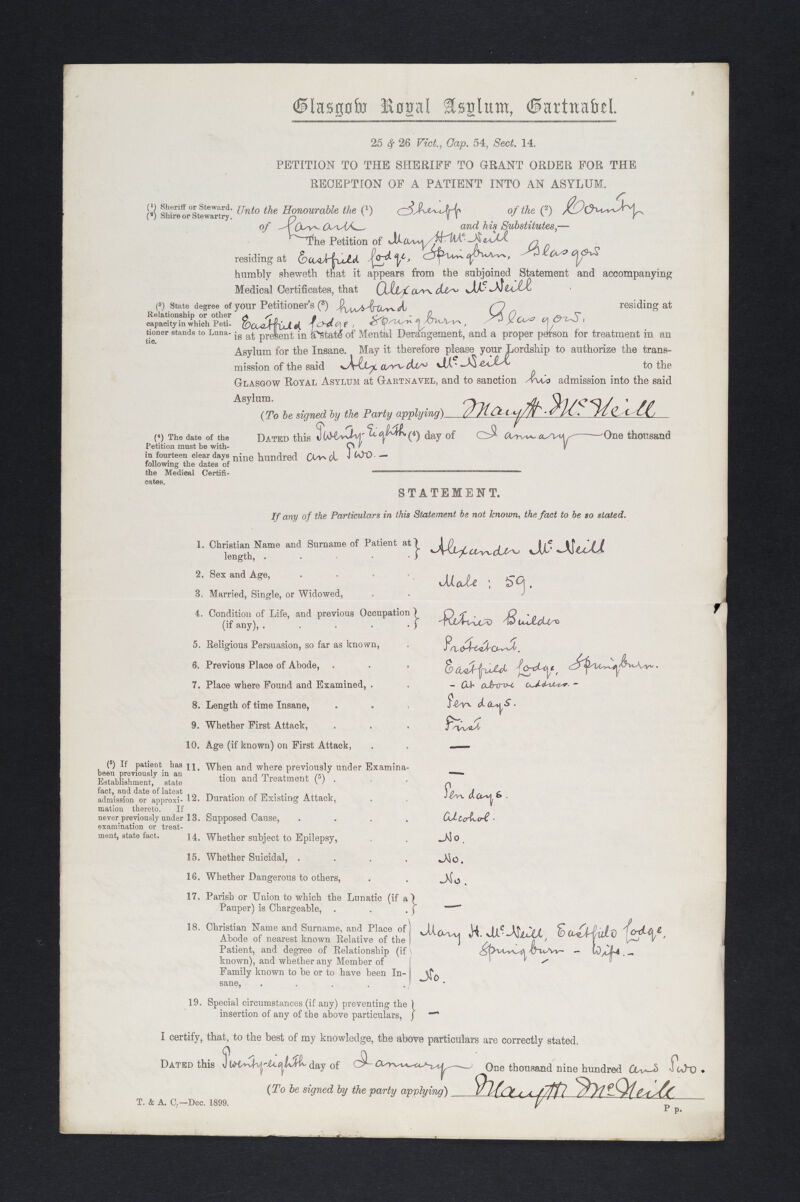 Glasgow Royal Asylum, Gartnavel.
25 & 26 Vict., Cap. 54, Sect. 14.
PETITION TO THE SHERIFF TO GRANT ORDER FOR THE
RECEPTION OF A PATIENT INTO AN ASYLUM.
(1) Sheriff or Steward.
(2) Shire or Stewartry.
Unto the Honourable the (1) Sheriff of the (2) County
of Lanark and his Substitutes,—
The Petition of Mary H. McNeill
residing at Eastfield Lodge, Springburn, Glasgow
humbly sheweth that it appears from the subjoined Statement and accompanying
Medical Certificates, that Alexander McNeill
(3) State degree of
Relationship or other
capacity in which Peti-
tioner stands to Luna-
tic.
your Petitioner's (3) husband residing at
Eastfield Lodge, Springburn, Glasgow,
is at present in a state of Mental Derangement, and a proper person for treatment in an
Asylum for the Insane. May it therefore please your Lordship to authorize the trans-
mission of the said Alexander McNeill to the
GLASGOW ROYAL ASYLUM at GARTNAVEL, and to sanction his admission into the said
Asylum.
(To be signed by the Party applying) Mary H. McNeill
(4) The date of the
Petition must be with-
in fourteen clear days
following the dates of
the Medical Certifi-
cates.
DATED this Twenty-Eighth (4) day of January One thousand
nine hundred and Two.—
STATEMENT.
If any of the Particulars in this Statement be not known, the fact to be so stated.
1. Christian Name and Surname of Patient at
length, . . . . . Alexander McNeill
2. Sex and Age, . . . . Male ; 59.
3. Married, Single, or Widowed, . .
4. Condition of Life, and previous Occupation
(if any), . . . . . Retired Builder
5. Religious Persuasion, so far as known, . Protestant.
6. Previous Place of Abode, . . . Eastfield Lodge, Springburn.
7. Place where Found and Examined, . . - At above address -
8. Length of time Insane, . . . Ten days.
9. Whether First Attack, . . . First
10. Age (if known) on First Attack, . . —
(5) If patient has
been previously in an
Establishment, state
fact, and date of latest
admission or approxi-
mation thereto. If
never previously under
examination or treat-
ment, state fact.
11. When and where previously under Examina-
tion and Treatment (5) . . . —
12. Duration of Existing Attack, . . Ten days.
13. Supposed Cause, . . . . Alcohol.
14. Whether subject to Epilepsy, . . No.
15. Whether Suicidal, . . . . No.
16. Whether Dangerous to others, . . No.
17. Parish or Union to which the Lunatic (if a
Pauper) is Chargeable, . . . —
18. Christian Name and Surname, and Place of
Abode of nearest known Relative of the
Patient, and degree of Relationship (if
known), and whether any Member of
Family known to be or to have been In-
sane, . . . . . .
Mary H. McNeill, Eastfield Lodge,
Springburn - Wife.-
No.
19. Special circumstances (if any) preventing the
insertion of any of the above particulars, —
I certify, that, to the best of my knowledge, the above particulars are correctly stated.
DATED this Twenty-eighth day of January One thousand nine hundred and Two.
(To be signed by the party applying) Mary H McNeill
T. & A. C.—Dec. 1899.
P p.